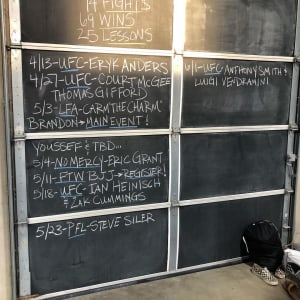 94 FIGHTS
69 WINS
25 LESSONS
4/13-UFC-ERYK ANDERS
4/27-UFC-COURT McGEE
THOMAS GIFFORD
5/3-LFA-CARM "THE CHARM"
BRANDON → MAIN EVENT!
YOUSSEF & TBD...
5/4-NO MERCY-ERIC GRANT
5/11-FTW BJJ → REGISTER!
5/18-UFC-IAN HEINISCH
& ZAK CUMMINGS
5/23-PFL-STEVE SILER
6/1-UFC-ANTHONY SMITH &
LUIGI VENDRAMINI